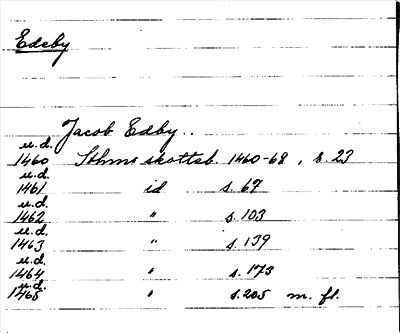 Edeby
Jacob Edby..
u.d.
1460 Sthms skottsb. 1460-68, s. 27
u.d.
1461 id s. 67
u.d.
1462 " s. 103
u.d.
1463 " s. 139
u.d.
1464 " s. 173
u.d.
1465 " s. 205 m. fl.